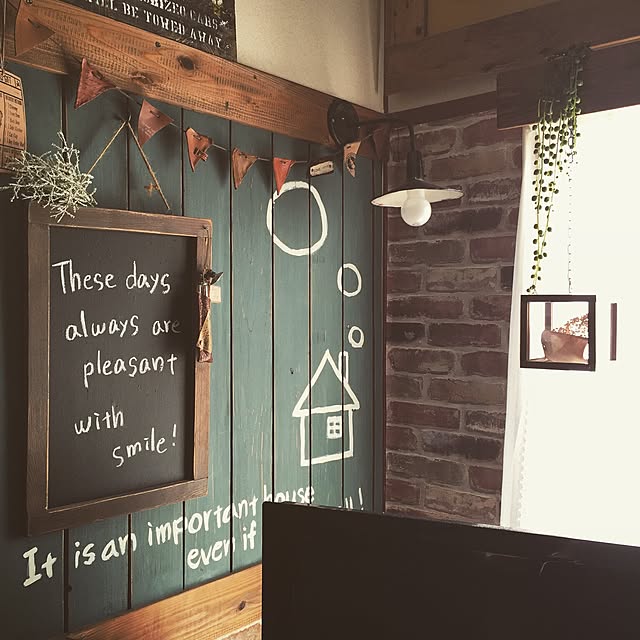 ORIZED CARS
ILL BE TOWED AWAY
These days
always are
pleasant
with
smile!
It is an important house
even if
!